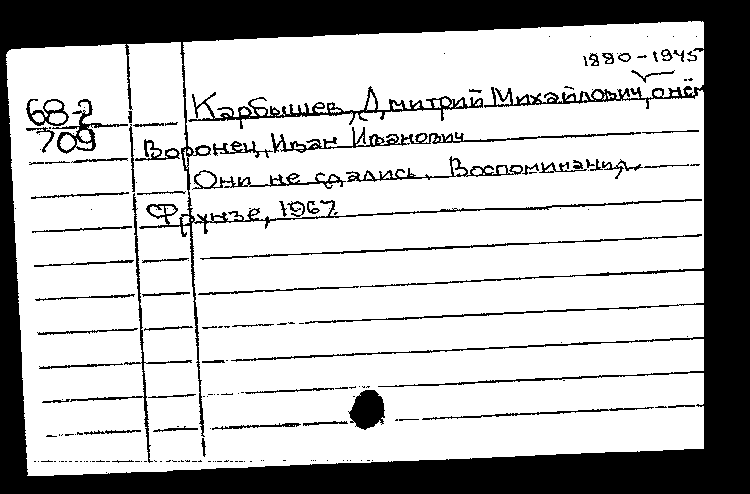 1880-1945
68-2 Карбышев, Дмитрий Михайлович, о нём
709 Воронец, Иван Иванович
Они не сдались. Воспоминания.
Фрунзе, 1967